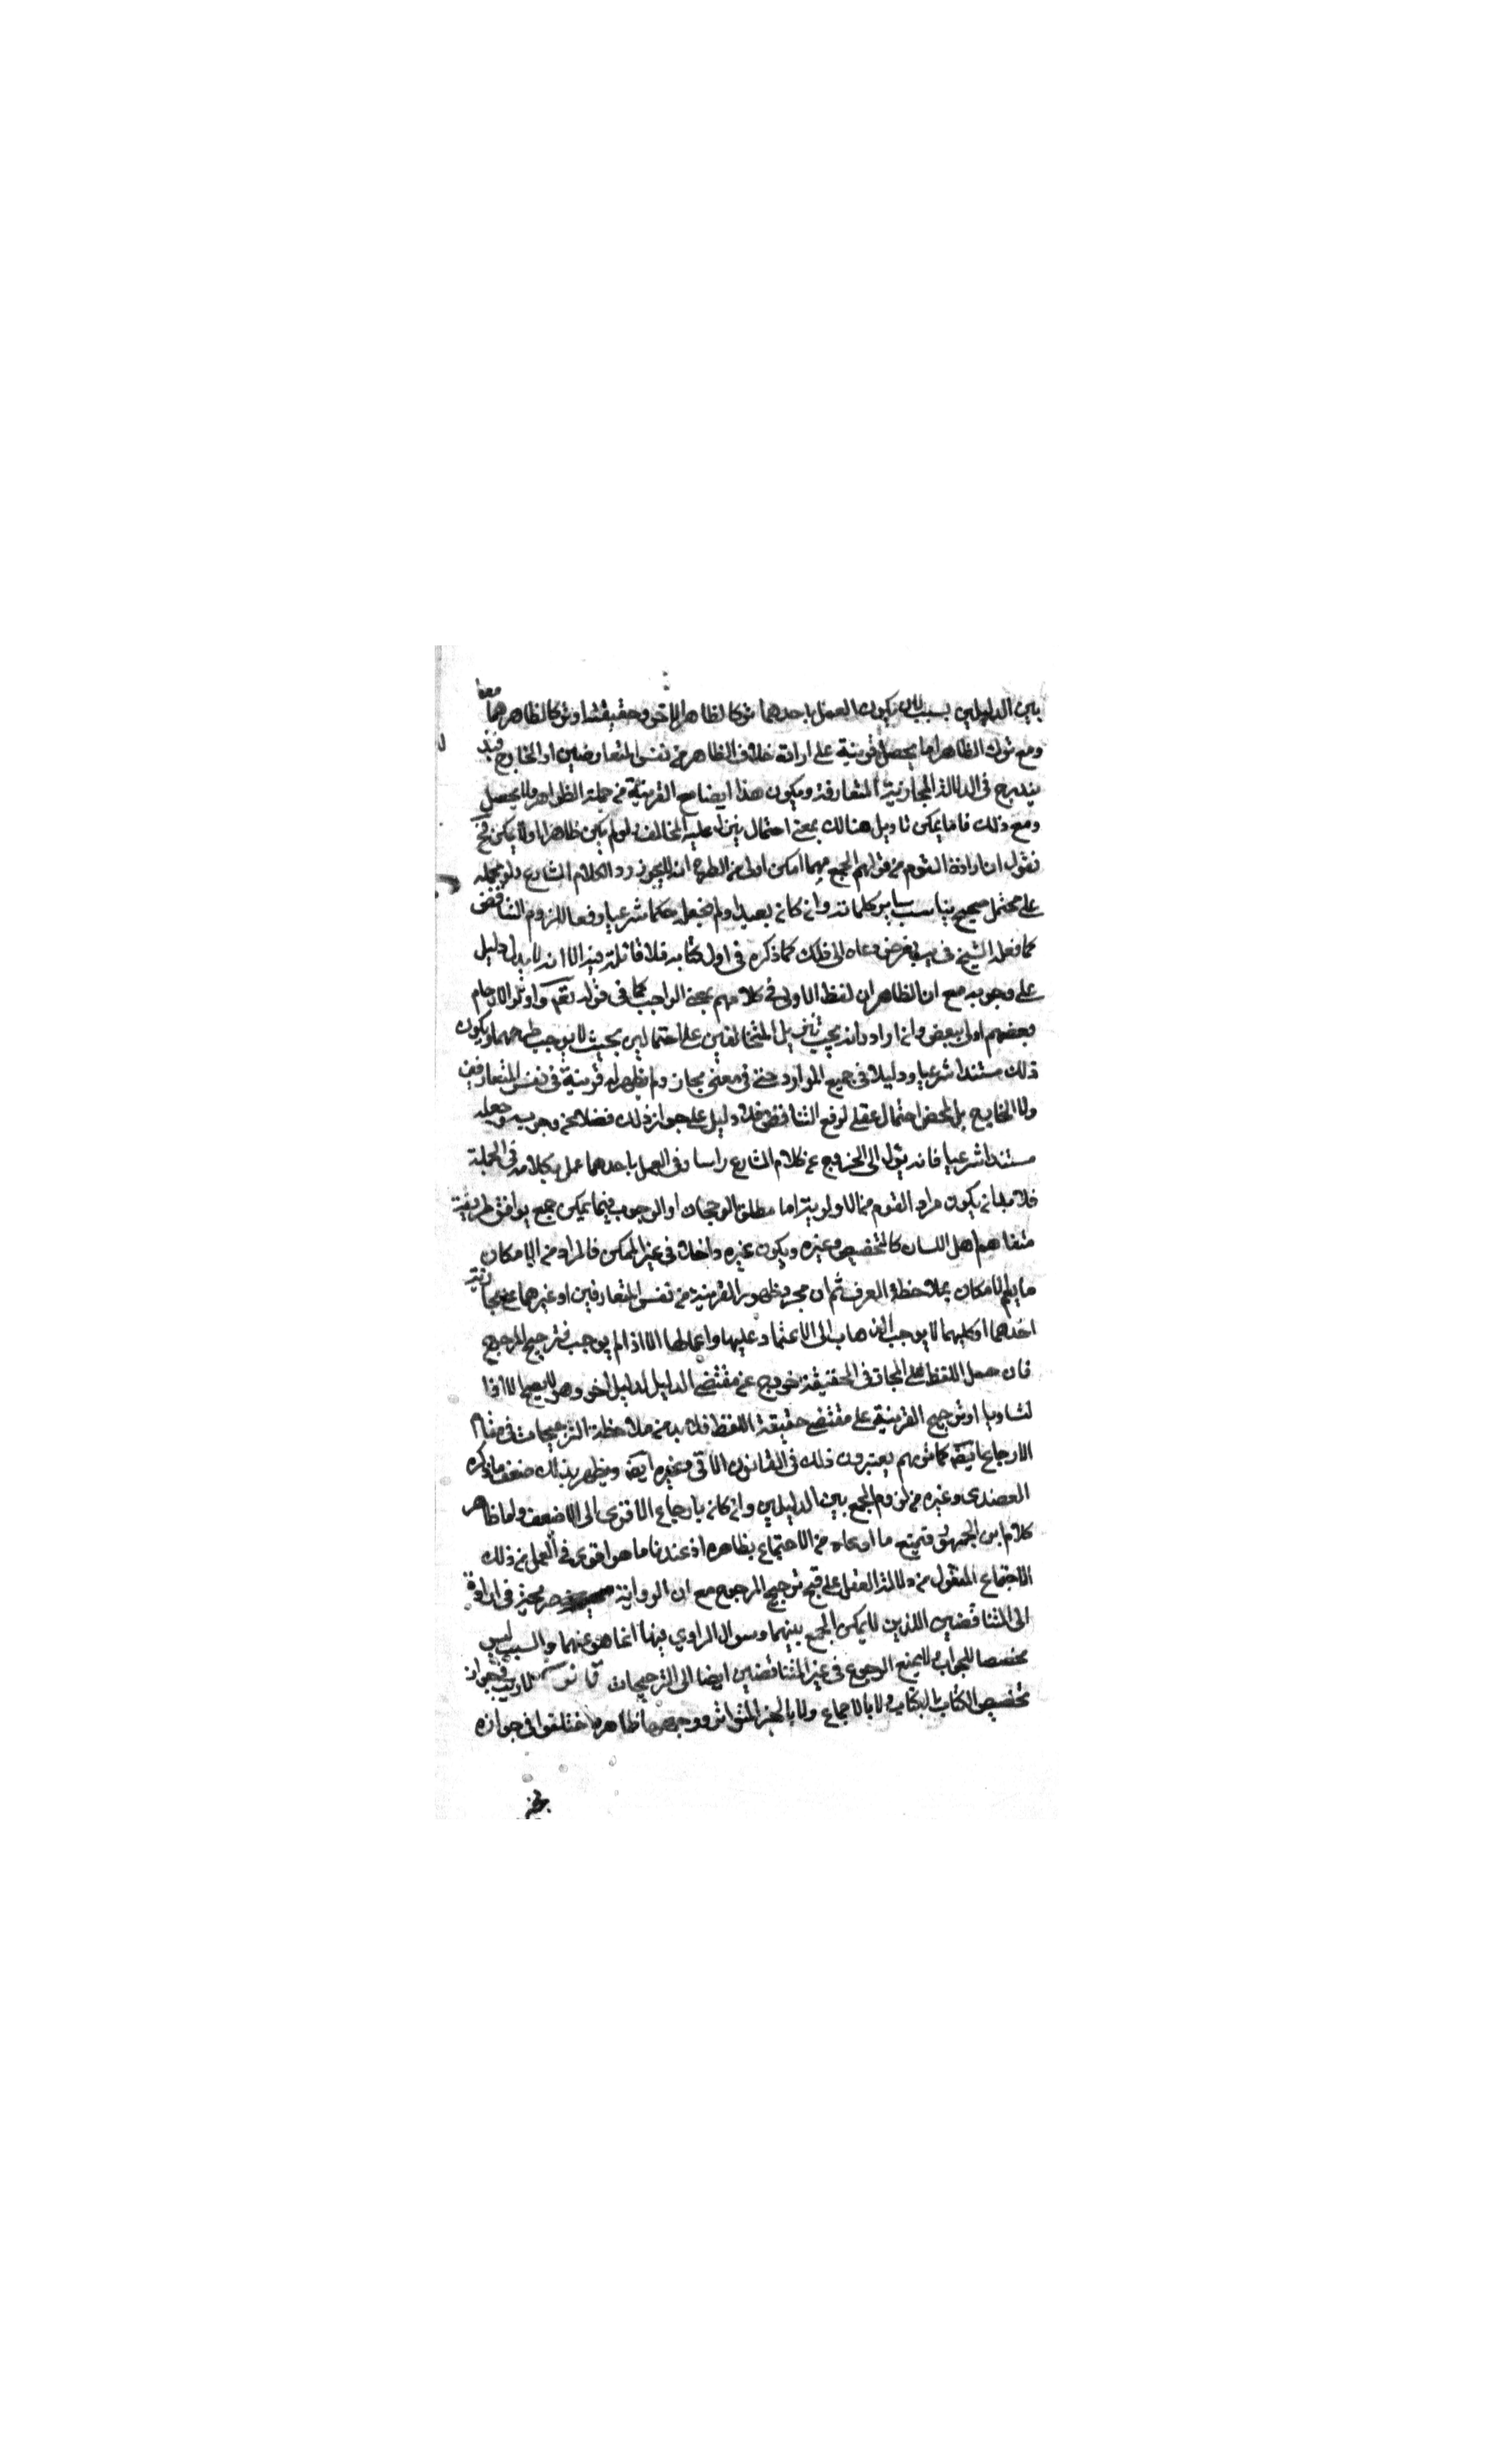 بين الدليلين بسبب ان يكون العمل باحدهما تركا لظاهر الاخر وحقيقته او تركا لظاهرهما معا
ومع ترك الظاهر اما يحصل قرينة على ارادة خلاف الظاهر من نفس المتعارضين او الخارج
يندرج في الدلالة المجازية المتعارفة ويكون هذا ايضا مع القرينة من جملة الظواهر ولا يحصل
ومع ذلك فاما يمكن تاويل هنالك بمعنى احتمال ينزل عليه المخالف ولو لم يكن ظاهرا او لا يمكن فح
نقول ان ارادة القوم من قولهم الجمع مهما امكن اولى من الطرح انه لا يجوز رد الكلام الشارع ولو بحمله
على محتمل صحيح يناسب ساير كلماته وان كان بعيدا ولم نجعله حكما شرعيا دفعا للزوم التناقض
كما فعله الشيخ في يب لغرض دعاه الى ذلك كما ذكره في اول كتابه فلا غائلة فيه الا انه لا يدل دليل
على وجوبه مع ان الظاهر ان لفظ الاولى في كلامهم بمعنى الواجب كما في قوله تعم واولوا الارحام
بعضهم اولى ببعض وان ارادوا انه يجب تنزيل المتخالفين على احتمالين بحيث لا يوجب طرحهما ويكون
ذلك مستندا شرعيا ودليلا في جميع الموارد حتى في معنى مجاز ولم يظهر له قرينة في نفس المتعارضين
ولا الخارج بل لمحض احتمال عقلي لرفع التناقض فلا دليل على جواز ذلك فضلا عن وجوبه وجعله
مستندا شرعيا فانه يؤل الى الخروج عن كلام الشارع راسا وفي العمل باحدهما عمل بكلامه في الجملة
فلا بد ان يكون مراد القوم من الاولوية اما مطلق الرجحان او الوجوب فيما يمكن جمع يوافق طريقة
متفاهم اهل اللسان كالتخصيص وغيره ويكون غيره داخلا في غير الممكن فالمراد من الامكان
ما يلم الامكان بملاحظة العرف ثم ان مجرد ظهور القرينة من نفس المتعارضين او غيرهما على مجازية
احدهما او كليهما لا يوجب الذهاب الى الاعتماد عليها واعمالها الا اذا لم يوجب ترجيح المرجوح
فان حمل اللفظ على المجاز في الحقيقة خروج عن مقتضى الدليل لدليل اخر وهو لا يصح الا اذا
تساويا او ترجح القرينة على مقتضى حقيقة اللفظ فلا بد من ملاحظة الترجيحات في مقام
الارجاع ايضا كما تريهم يعتبرون ذلك في القانون الاتي وغيره ايضا ويظهر بذلك ضعف ما ذكره
العضدي وغيره من لزوم الجمع بين الدليلين وان كان بارجاع الاقوى الى الاضعف واما ظاهر
كلام ابن الجمهور فنمنع ما ادعاه من الاجماع بظاهره اذ عندنا ما هو اقوى في العمل من ذلك
الاجماع المنقول من دلالة العقل على قبح ترجيح المرجوح مع ان الرواية صريحة في ارادة
الى المتناقضين اللذين لا يمكن الجمع بينهما وسوال الراوي فيها انما هو عنهما والسبب ليس
مخصصا للجواب لا يمنع الرجوع في غير المتناقضين ايضا الى الترجيحات قانون لا ريب في جواز
تخصيص الكتاب بالكتاب ولا بالاجماع ولا بالخبر المتواتر ووجوهها ظاهرة اختلفوا في جوازه
بخبر